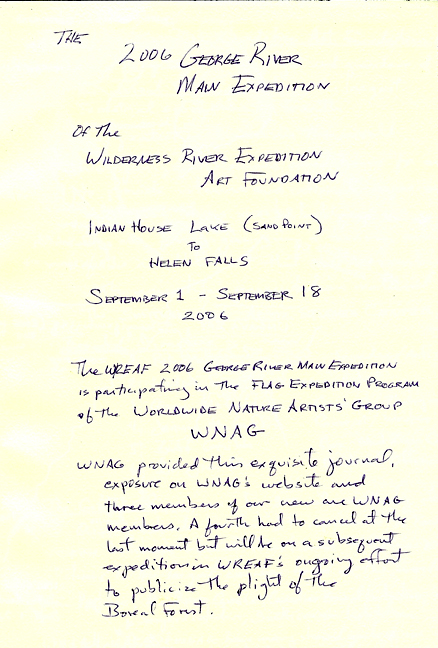 THE
2006 GEORGE RIVER
MAIN EXPEDITION
Of The
WILDERNESS RIVER EXPEDITION
ART FOUNDATION
INDIAN HOUSE LAKE (SAND POINT)
TO
HELEN FALLS
SEPTEMBER 1 - SEPTEMBER 18
2006
The WREAF 2006 GEORGE RIVER MAIN EXPEDITION
is participating in the FLAG EXPEDITION PROGRAM
of the WORLDWIDE NATURE ARTISTS' GROUP
WNAG
WNAG provided this exquisite journal,
exposure on WNAG's website and
three members of our crew are WNAG
members. A fourth had to cancel at the
last moment but will be on a subsequent
expedition in WREAF's ongoing effort
to publicize the plight of the
Boreal Forest.